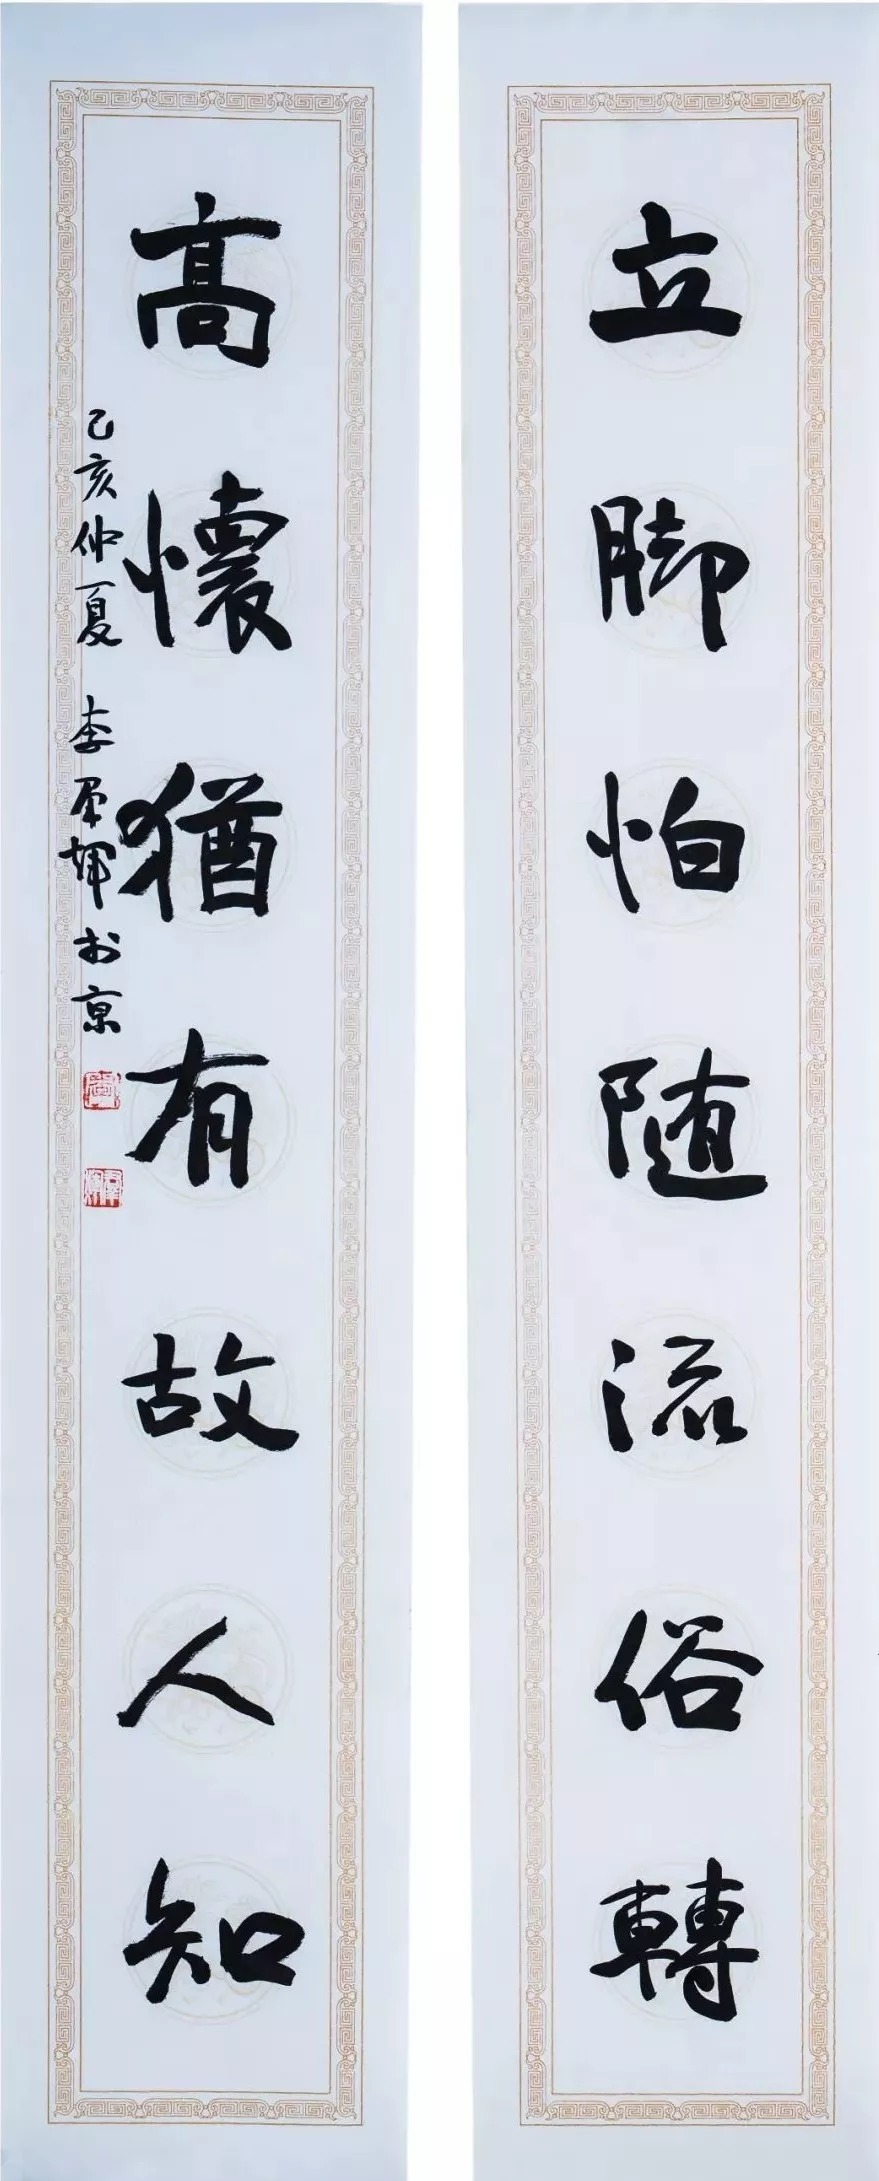 立脚怕随流俗轉
高懷猶有故人知
己亥仲夏 李羣輝於京